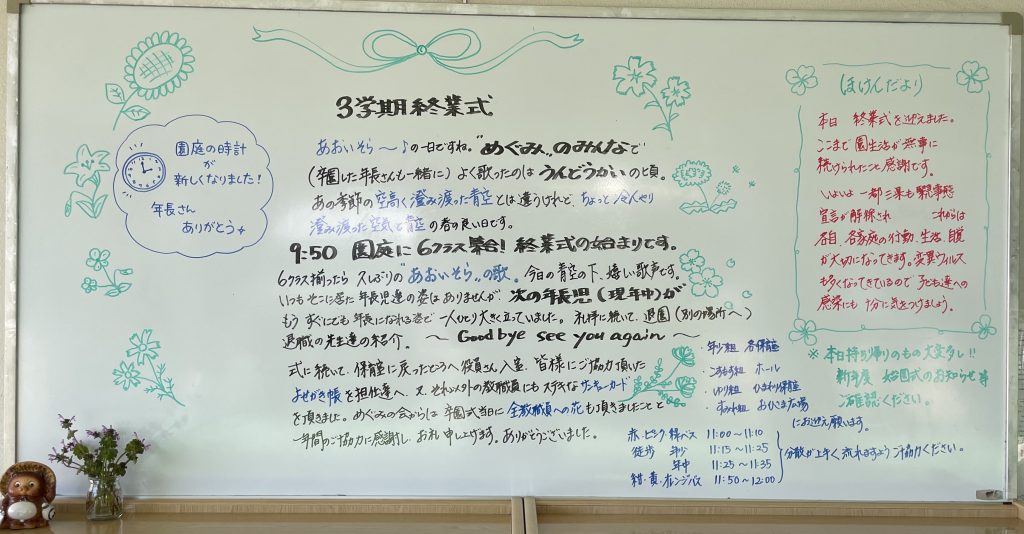 3学期終業式
あおいそら〜♪の一日ですね。"めぐみ"のみんなで
(卒園した年長さんも一緒に)よく歌ったのは うんどうかいの頃。
あの季節の空高く澄み渡った青空とは違うけれど、ちょっと冷んやり
澄み渡った空気で青空の春の良い日です。
9:50 園庭に6クラス集合! 終業式の始まりです。
6クラス揃ったら 久しぶりの"あおいそら"の歌。今日の青空の下、嬉しい歌声です。
いつもそこに居た年長児達の姿はありませんが 次の年長児(現年中)が
もうすぐにでも年長になれる姿で一人ひとり大きく立っていました。礼拝に続いて、退園(別の場所へ)
退職の先生達の紹介。 〜 Goodbye see you again 〜
式に続いて、保育室に戻ったところへ役員さん入室、皆様にご協力頂いた
よせがき帳を担任達へ、又、それ以外の教職員にもステキなサンキューカード
を頂きました。めぐみの会からは 卒園式当日に全教職員への花も頂きましたことと
一年間のご協力に感謝し お礼申し上げます。ありがとうございました。
園庭の時計
が
新しくなりました!
年長さん
ありがとう
ほけんだより
本日 終業式を迎えました。
ここまで園生活が無事に
続けられたこと感謝です。
いよいよ一都三県も緊急事態
宣言が解除され これからは
各自、各家庭の行動、生活、自覚
が大切になってきます。変異ウィルス
も多くなってきているので 子ども達への
感染にも十分に気をつけましょう。
※本日持ち帰りのもの大変多し!!
新年度 始園式のお知らせ等
ご確認ください。
・年少組 各保育室
・こすもす組 ホール
・ゆり組 ひまわり保育室
・すみれ組 おひさま広場
にお迎え願います。
赤・ピンク・緑バス 11:00〜11:10
徒歩 年少 11:15〜11:25
年中 11:25〜11:35
紺・黄・オレンジバス 11:50〜12:00
分散が上手く流れますようご協力ください。